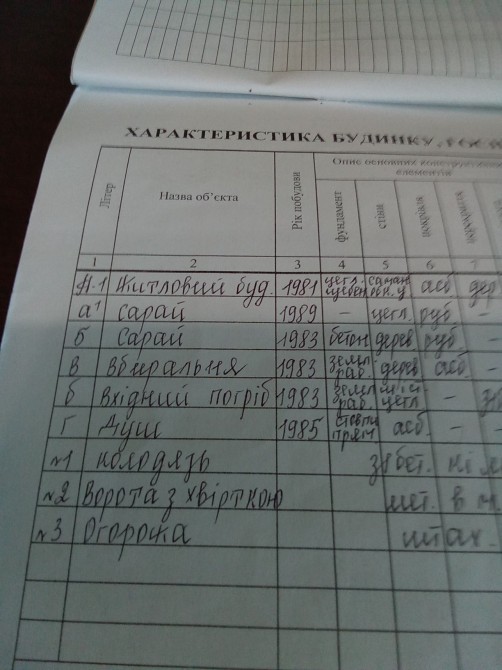 ХАРАКТЕРИСТИКА БУДИНКУ,
Літер Назва об'єкта Рік побудови Опис основних
елементів
фундамент стіни покрівля
1 2 3 4 5 6 7
А-1 Житловий буд. 1981 цегл. асб дер
а¹ сарай 1989 – цегл. руб –
б сарай 1983 бетон дерев руб –
в вбиральня 1983 дерев асб. –
б вхідний погріб 1983 цегл –
г душ 1985 асб. – –
№1 колодязь
№2 Ворота з хвірткою мет.
№3 Огорожа штах.